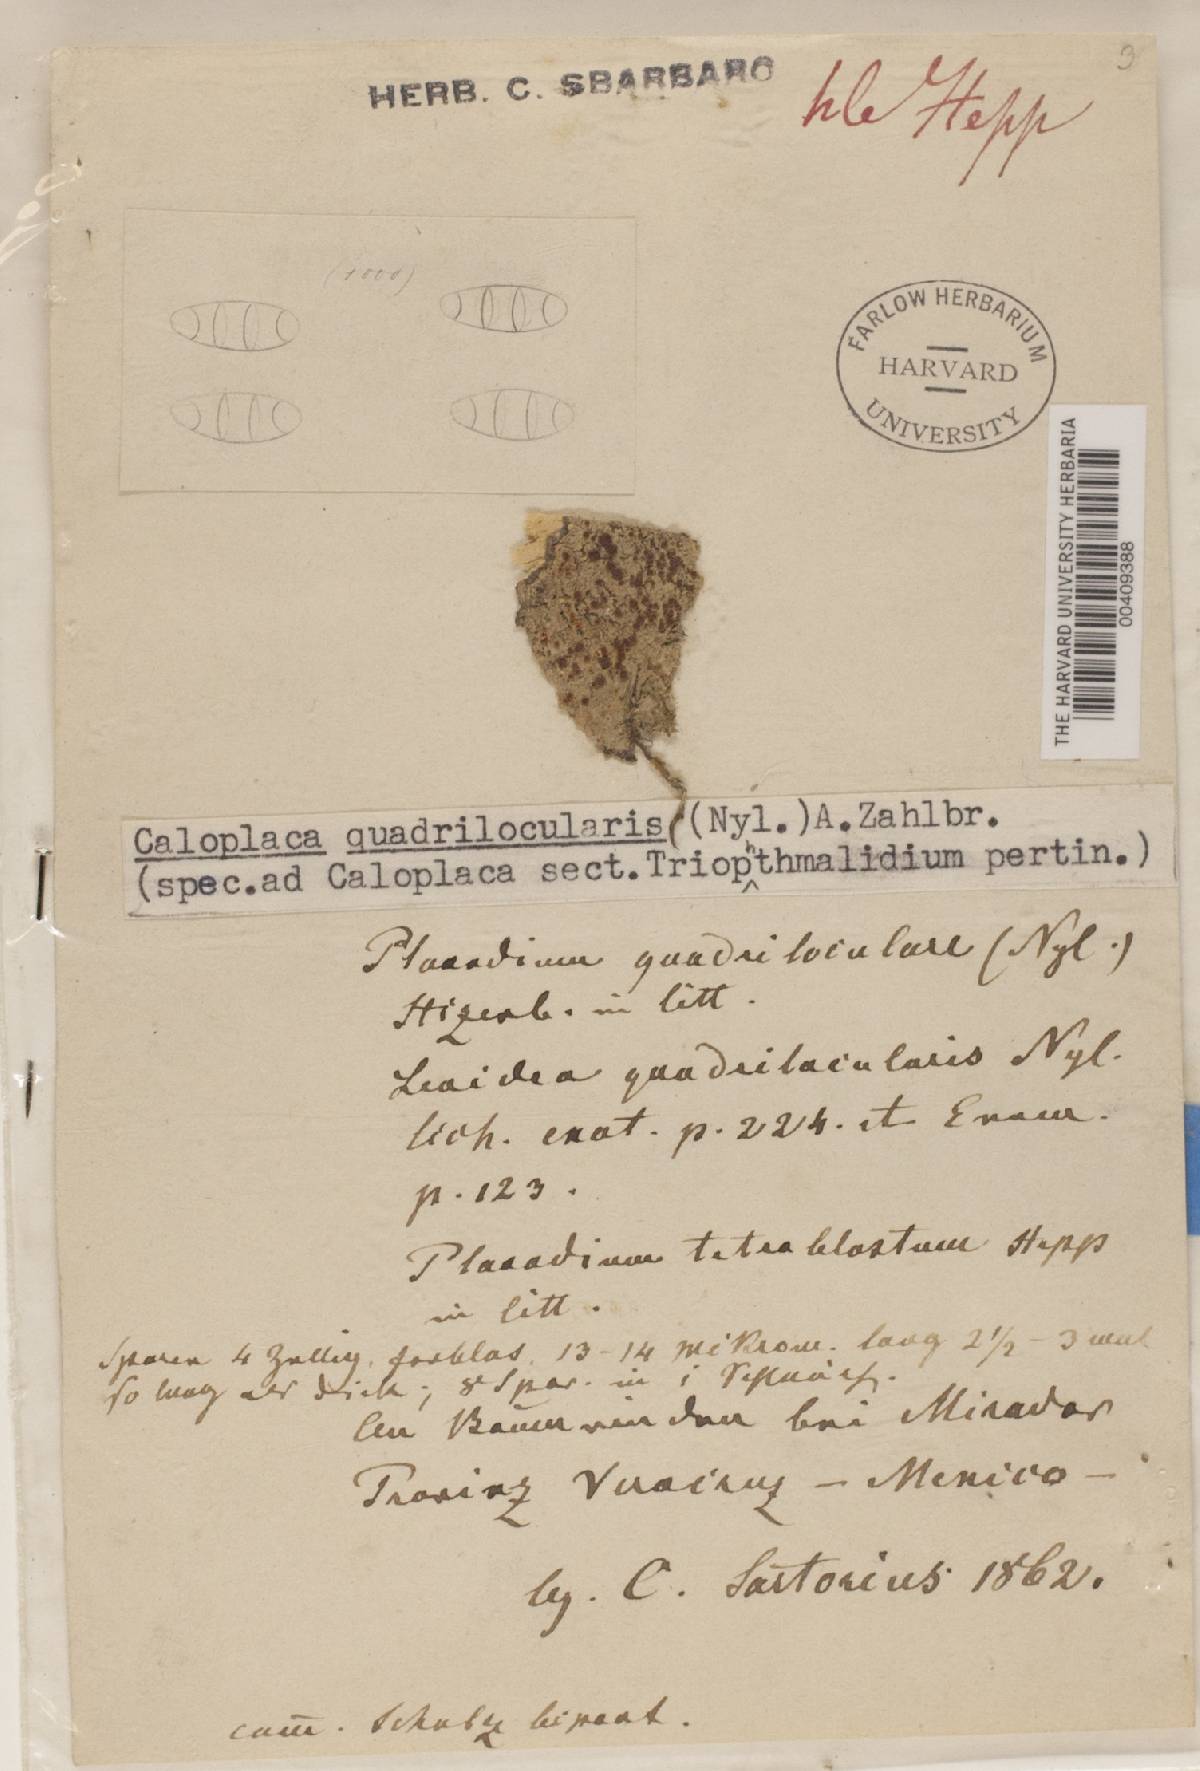 9
HERB. C. SBARBARO
hb Hepp
(1000)
FARLOW HERBARIUM
HARVARD
UNIVERSITY
THE HARVARD UNIVERSITY HERBARIA
00409388
Caloplaca quadrilocularis (Nyl.)A.Zahlbr.
(spec.ad Caloplaca sect.Triophthmalidium pertin.)
Placodium quadriloculare (Nyl.)
Hizenb. in litt.
Lecidea quadrilocularis Nyl.
lich. exot. p. 224. et Enum.
p. 123.
Placodium tetrablastum Hepp
in litt.
Sporen 4 zellig, farblos, 13-14 mikrom. lang 2½ - 3 mal
so lang als dick; 8 Spor. in 1 Schlauch.
An Baumrinden bei Mirador
Provinz Veracruz - Mexico -
leg. C. Sartorius 1862.
com. Schultz bipont.